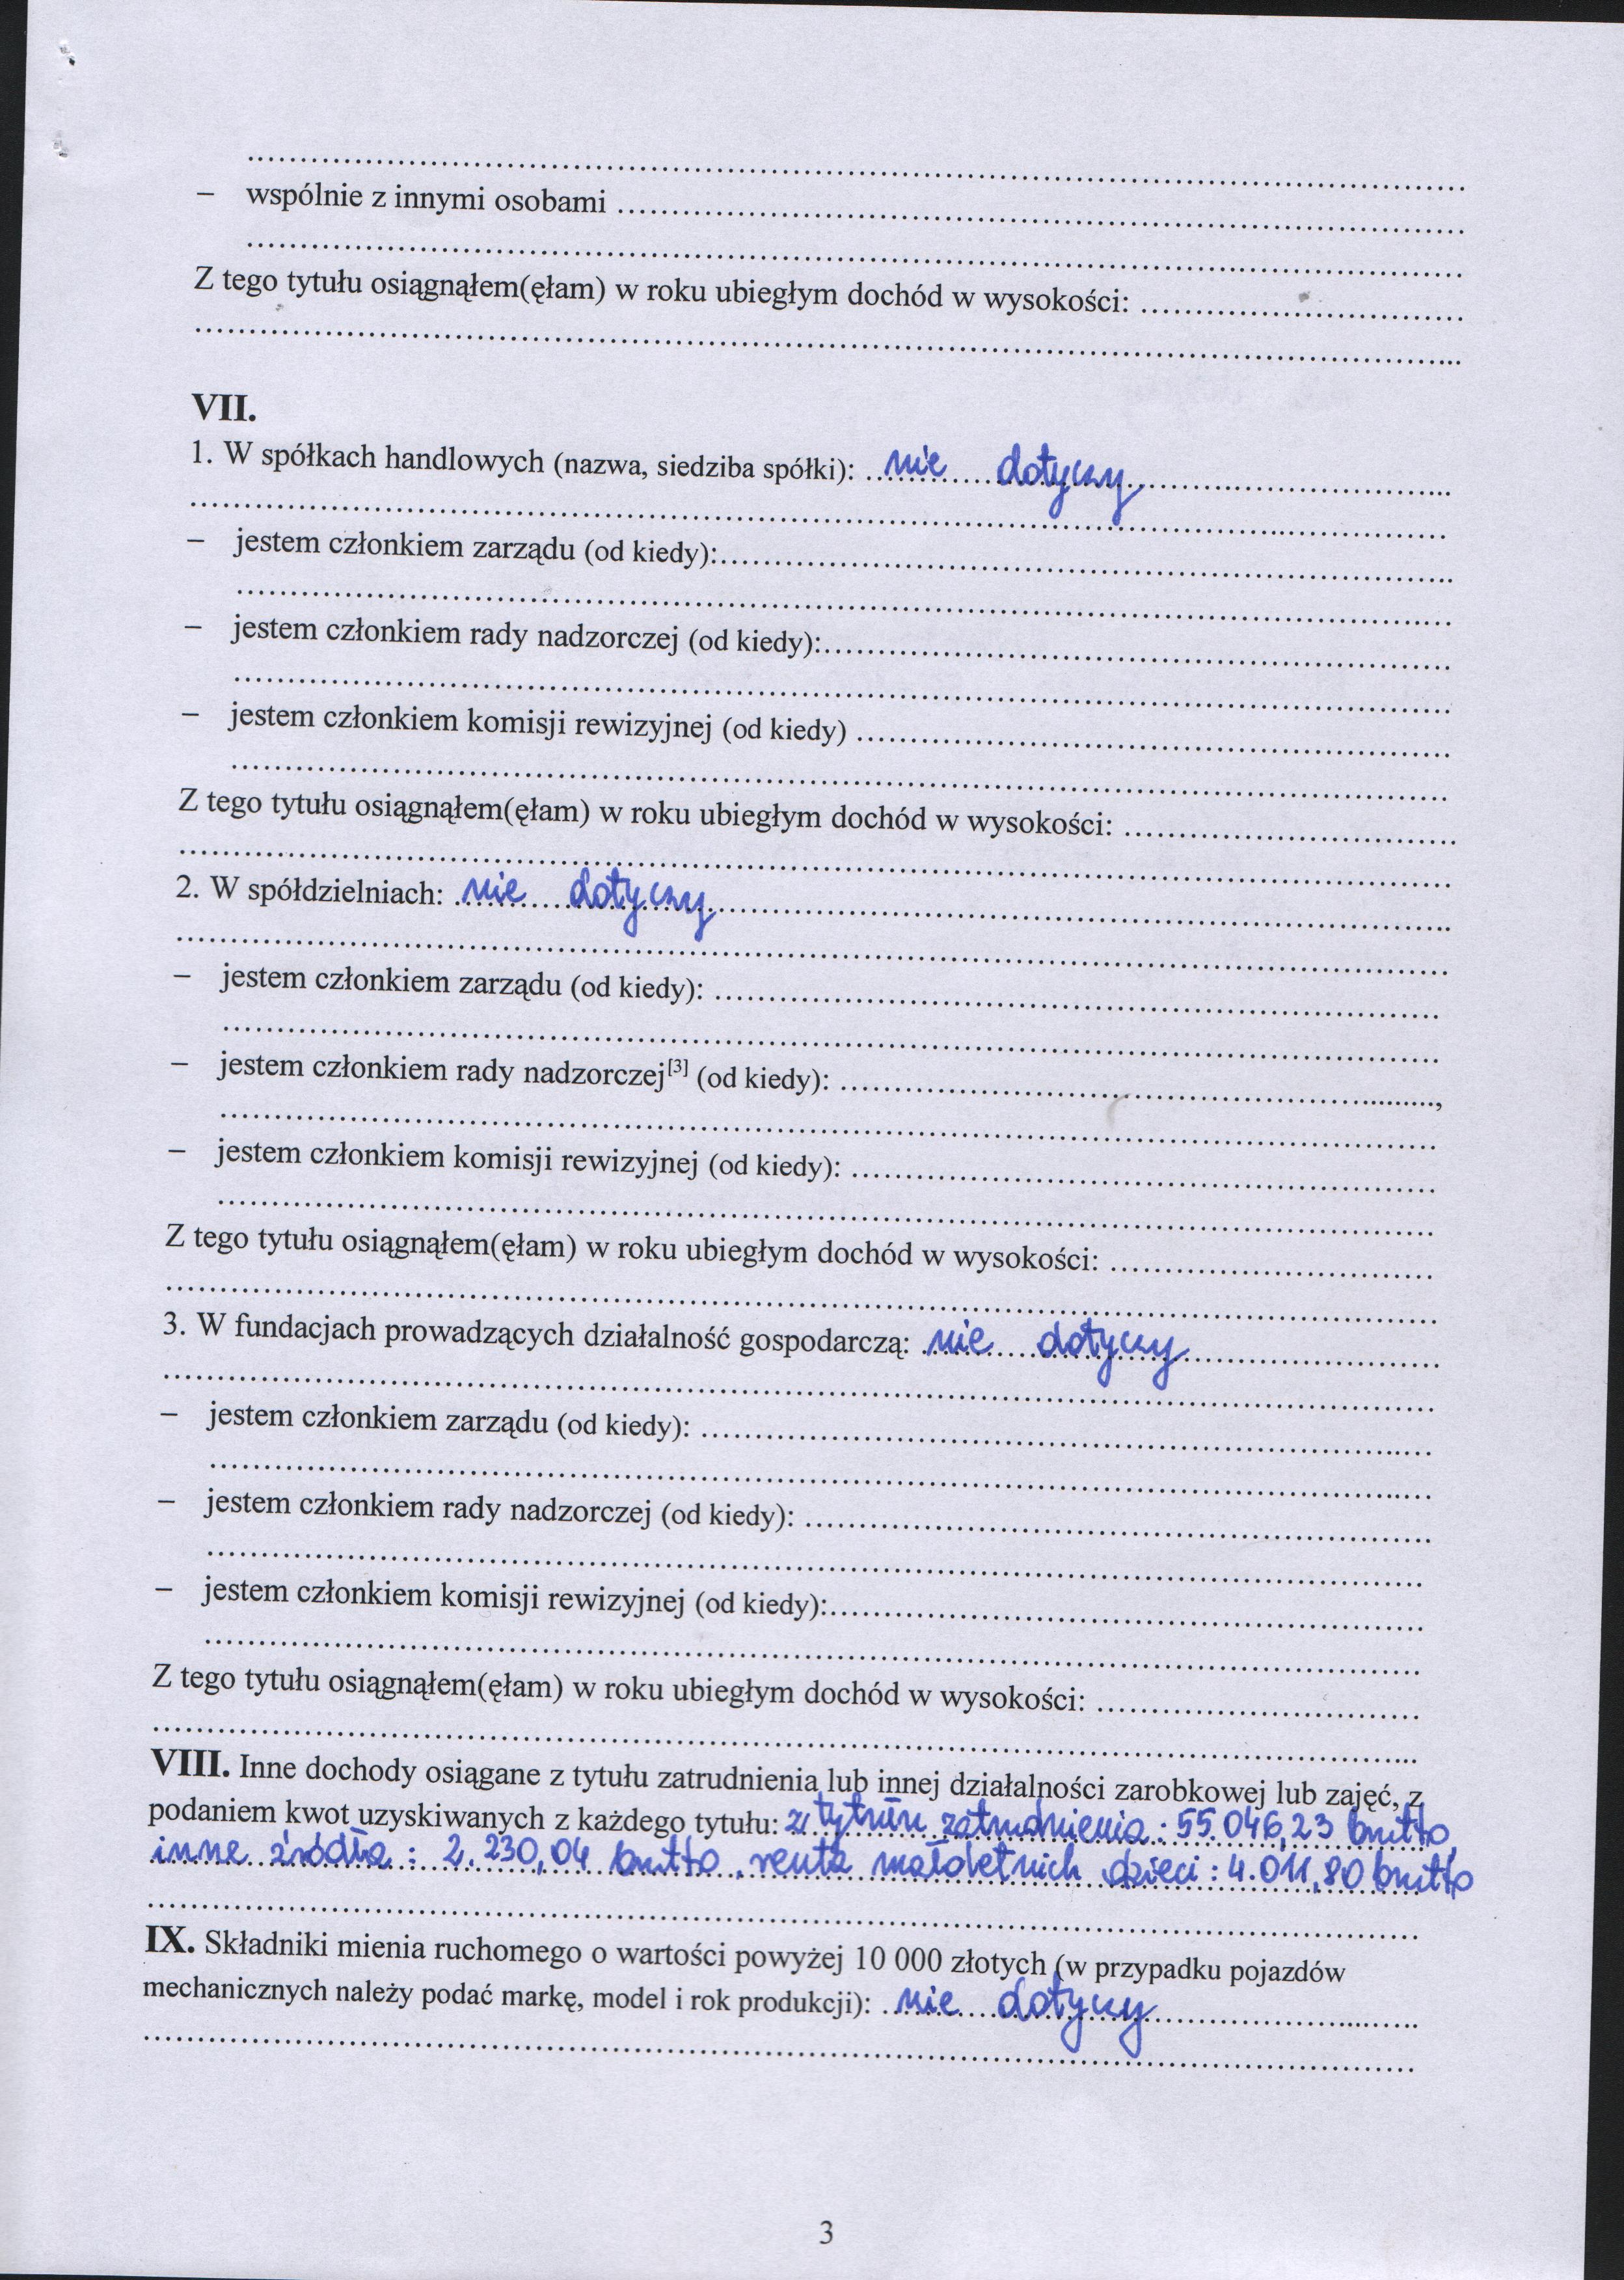 – wspólnie z innymi osobami ........................................
Z tego tytułu osiągnąłem(ęłam) w roku ubiegłym dochód w wysokości: ........................................
VII.
1. W spółkach handlowych (nazwa, siedziba spółki): nie dotyczy
– jestem członkiem zarządu (od kiedy):........................................
– jestem członkiem rady nadzorczej (od kiedy):........................................
– jestem członkiem komisji rewizyjnej (od kiedy) ........................................
Z tego tytułu osiągnąłem(ęłam) w roku ubiegłym dochód w wysokości: ........................................
2. W spółdzielniach: nie dotyczy
– jestem członkiem zarządu (od kiedy): ........................................
– jestem członkiem rady nadzorczej[3] (od kiedy): ........................................,
– jestem członkiem komisji rewizyjnej (od kiedy): ........................................
Z tego tytułu osiągnąłem(ęłam) w roku ubiegłym dochód w wysokości: ........................................
3. W fundacjach prowadzących działalność gospodarczą: nie dotyczy
– jestem członkiem zarządu (od kiedy): ........................................
– jestem członkiem rady nadzorczej (od kiedy): ........................................
– jestem członkiem komisji rewizyjnej (od kiedy):........................................
Z tego tytułu osiągnąłem(ęłam) w roku ubiegłym dochód w wysokości: ........................................
VIII. Inne dochody osiągane z tytułu zatrudnienia lub innej działalności zarobkowej lub zajęć, z
podaniem kwot uzyskiwanych z każdego tytułu: z tytułu zatrudnienia : 55.046,23 brutto,
inne źródła : 2.230,04 brutto, renta małoletnich dzieci : 4.011,80 brutto
IX. Składniki mienia ruchomego o wartości powyżej 10 000 złotych (w przypadku pojazdów
mechanicznych należy podać markę, model i rok produkcji): nie dotyczy
3